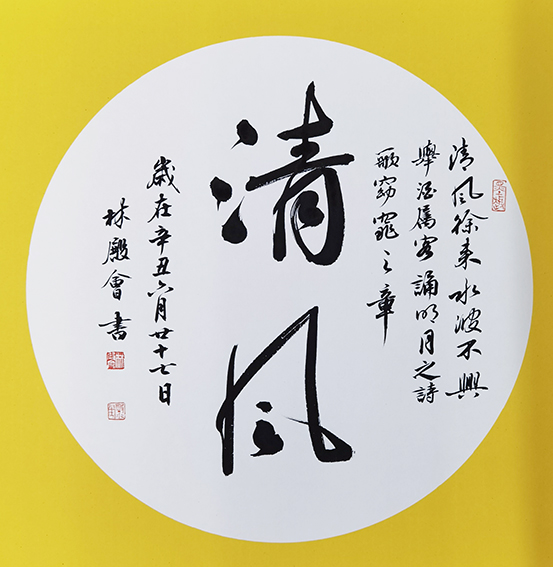 清风徐来水波不興
舉酒屬客誦明月之詩
歌窈窕之章
清风
歲在辛丑六月廿十七日
林殿會書